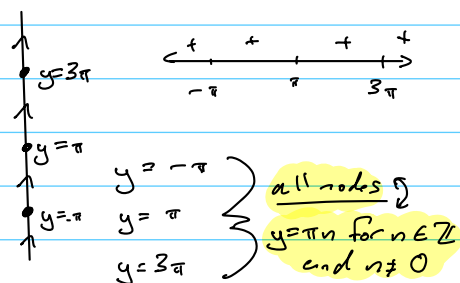 + + + +
-π π 3π
y=3π
y=π
y=-π
y = -π
y = π
y=3π
all nodes
y=πn for n∈ℤ
and n≠0